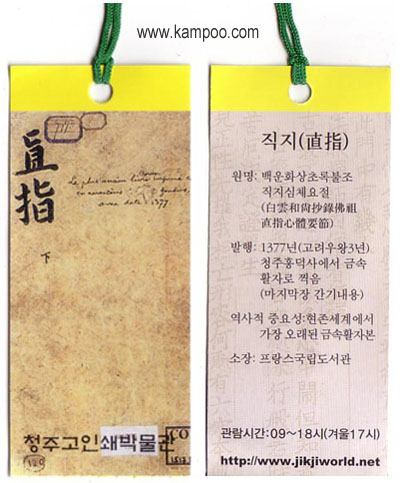 www.kampoo.com
直指
下
Le plus ancien livre imprimé connu
en caractères fondus,
avec date 1377
청주고인쇄박물관
직지(直指)
원명: 백운화상초록불조
직지심체요절
(白雲和尙抄錄佛祖
直指心體要節)
발행: 1377년(고려우왕3년)
청주흥덕사에서 금속
활자로 찍음
(마지막장 간기내용)
역사적 중요성:현존세계에서
가장 오래된 금속활자본
소장: 프랑스국립도서관
관람시간:09~18시(겨울17시)
http://www.jikjiworld.net